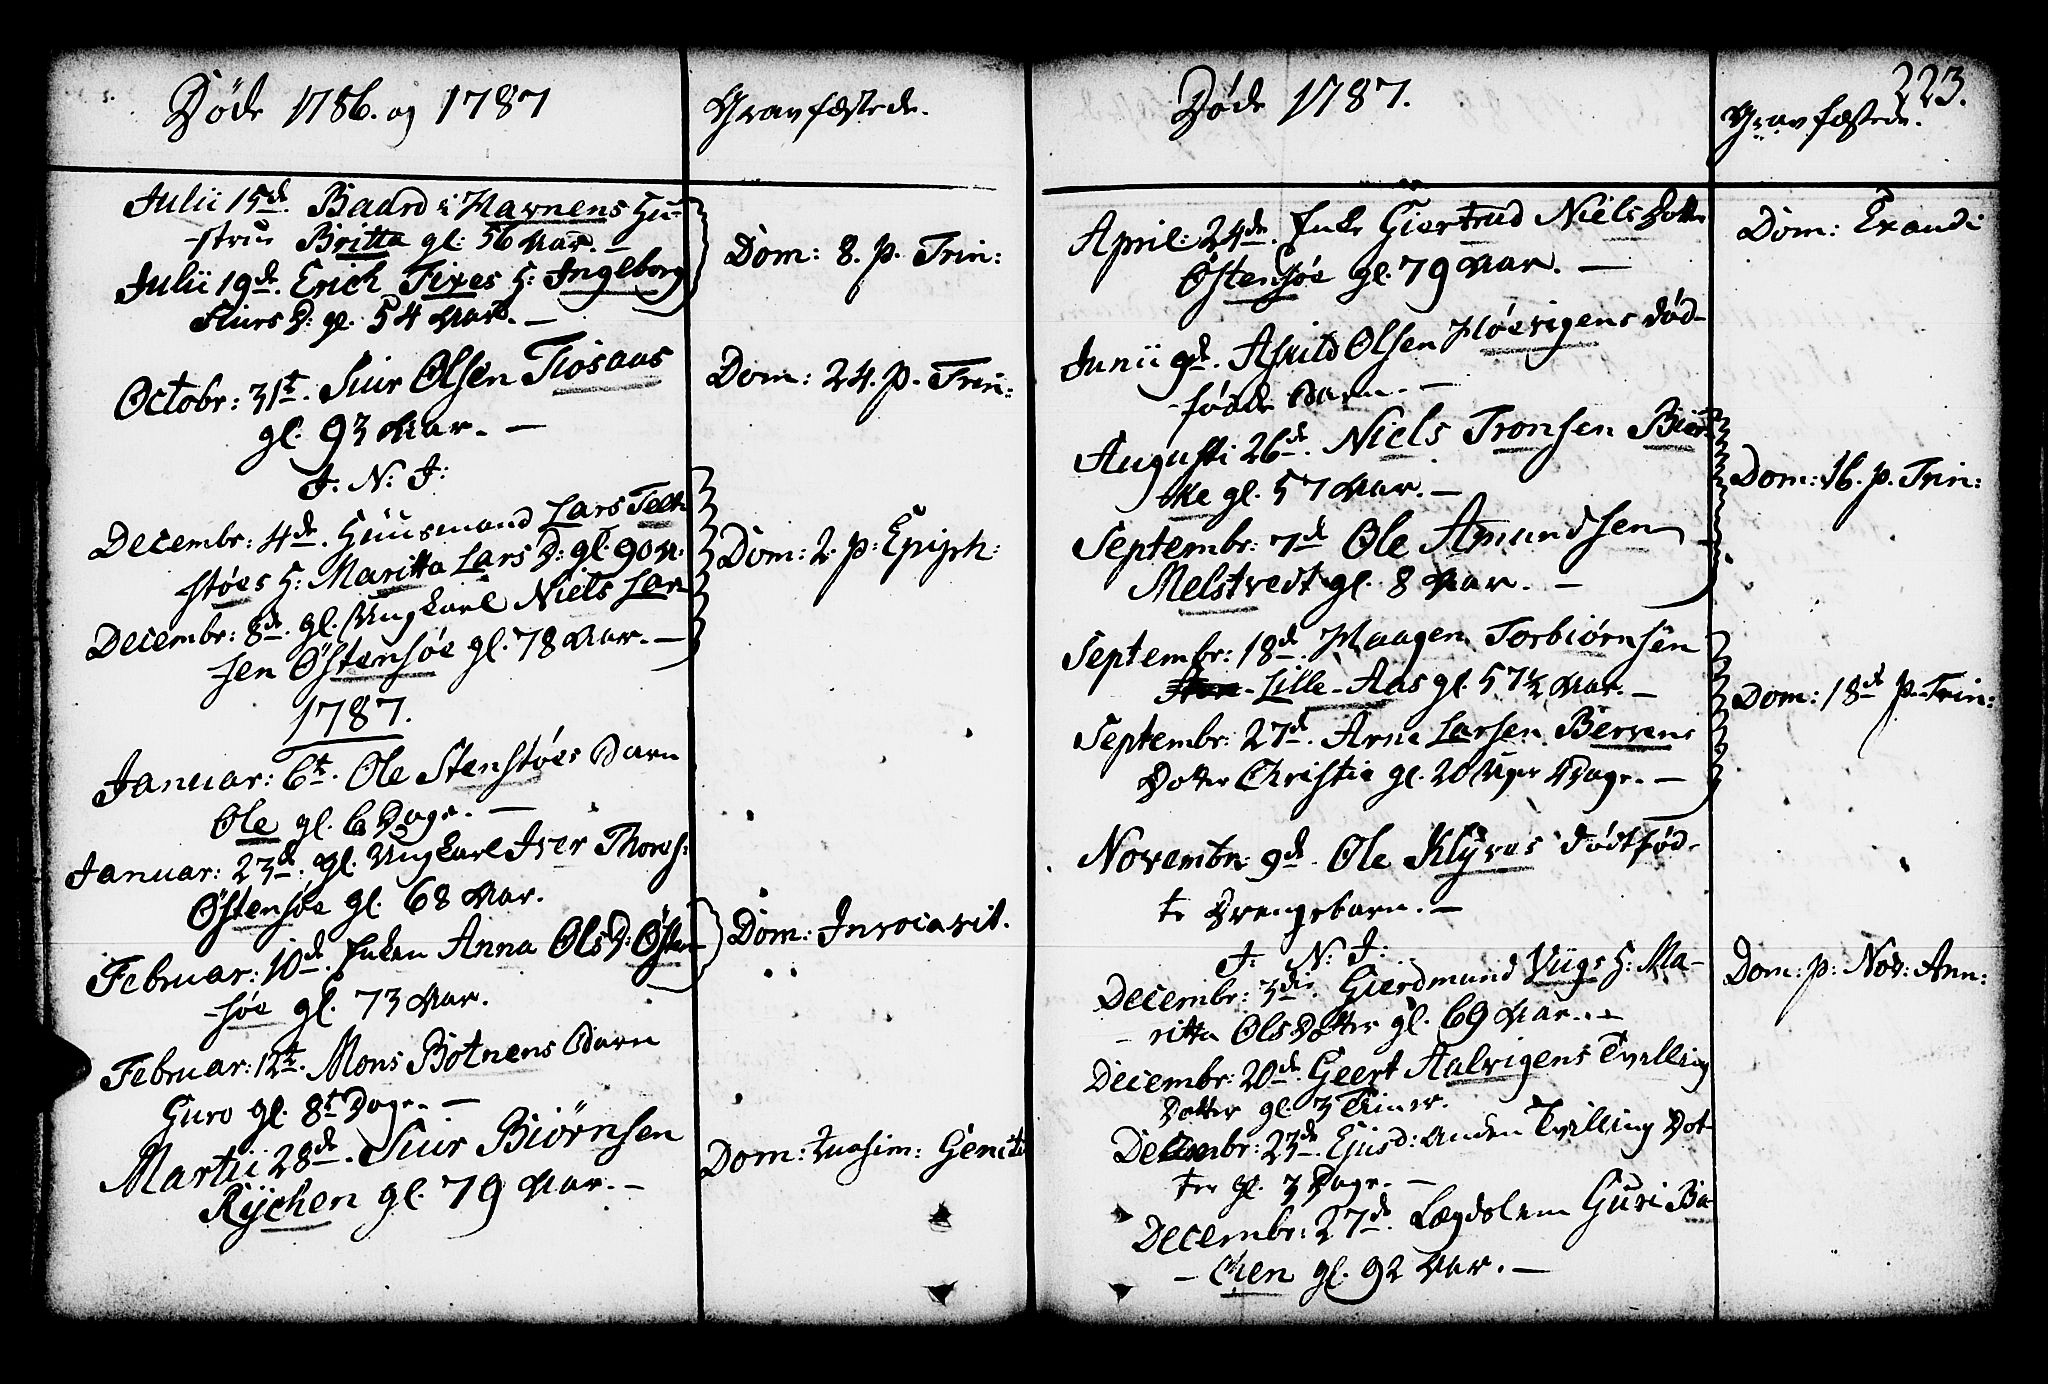 Døde 1786. og 1787
Gravfæstede.
Julii 15de. Baard i Havnens Hu-
-strue Britta gl: 56 Aar. —
Julii 19de. Erich Fixes H: Ingeborg
Siurs D: gl. 54 Aar. —
Dom: 8. p. Trin:
Octobr: 31t. Siur Olsen Fiosaas
gl. 93 Aar. —
Dom: 24. p. Trin:
J: N: J:
Decembr: 4de. Huusmand Lars Teth
støes H: Maritta Lars D: gl: 90 A:
Decembr: 8de. gl. Ungkarl Niels Lar
sen Østensøe gl. 78 Aar. —
Dom: 2. p: Epiph:
1787.
Januar: 6t. Ole Stenstøes Barn
Ole gl. 6 Dage. —
Januar: 23de. gl. Ungkarl Iver Thores:
Østensøe gl. 68 Aar.
Februar: 10de. Enken Anna Ols D: Østen
-søe gl. 73 Aar.
Dom: Invocavit.
Februar: 12t. Mons Botnens Barn
Guro gl. 8t Dage. —
Martii 28de. Siur Biørnsen
Rÿchen gl. 79 Aar. —
Dom: Quasim: Geniti
223.
Døde 1787.
Gravfæstede.
April: 24de. Enke Giertrud Niels Dotter
Østensøe gl. 79 Aar. —
Dom: Exaudi
Junii 9de. Askild Olsen Høevigens død-
-fødde Barn. —
Augusti 26de. Niels Tronsen Bier-
ke gl. 57 Aar. —
Septembr: 7de Ole Amundsen
Melstvedt gl. 8 Aar. —
Dom: 16. p. Trin:
Septembr: 18de. Haagen Torbiørnsen
- Lille - Aas gl. 57½ Aar. —
Septembr: 27de. Arne Larsen Bervens
Dotter Christie gl. 20 Uger Dage. —
Dom: 18de p. Trin:
Novembr: 9de. Ole Klÿves dødfød-
te Drengebarn. —
J: N: J:
Decembr: 3die. Gierdmund Viigs H: Ma-
- ritta Ols Dotter gl. 69 Aar. —
Dom: p: Nov: Ann:
Decembr: 20de. Geert Aalvigens Tvilling
Dotter gl. 3 Timer.
Decembr: 23de. Ejusd: anden Tvilling Dot
ter gl. 3 Dage. —
Decembr: 27de. Lægdslem Guri Ba-
- chen gl. 92 Aar. —